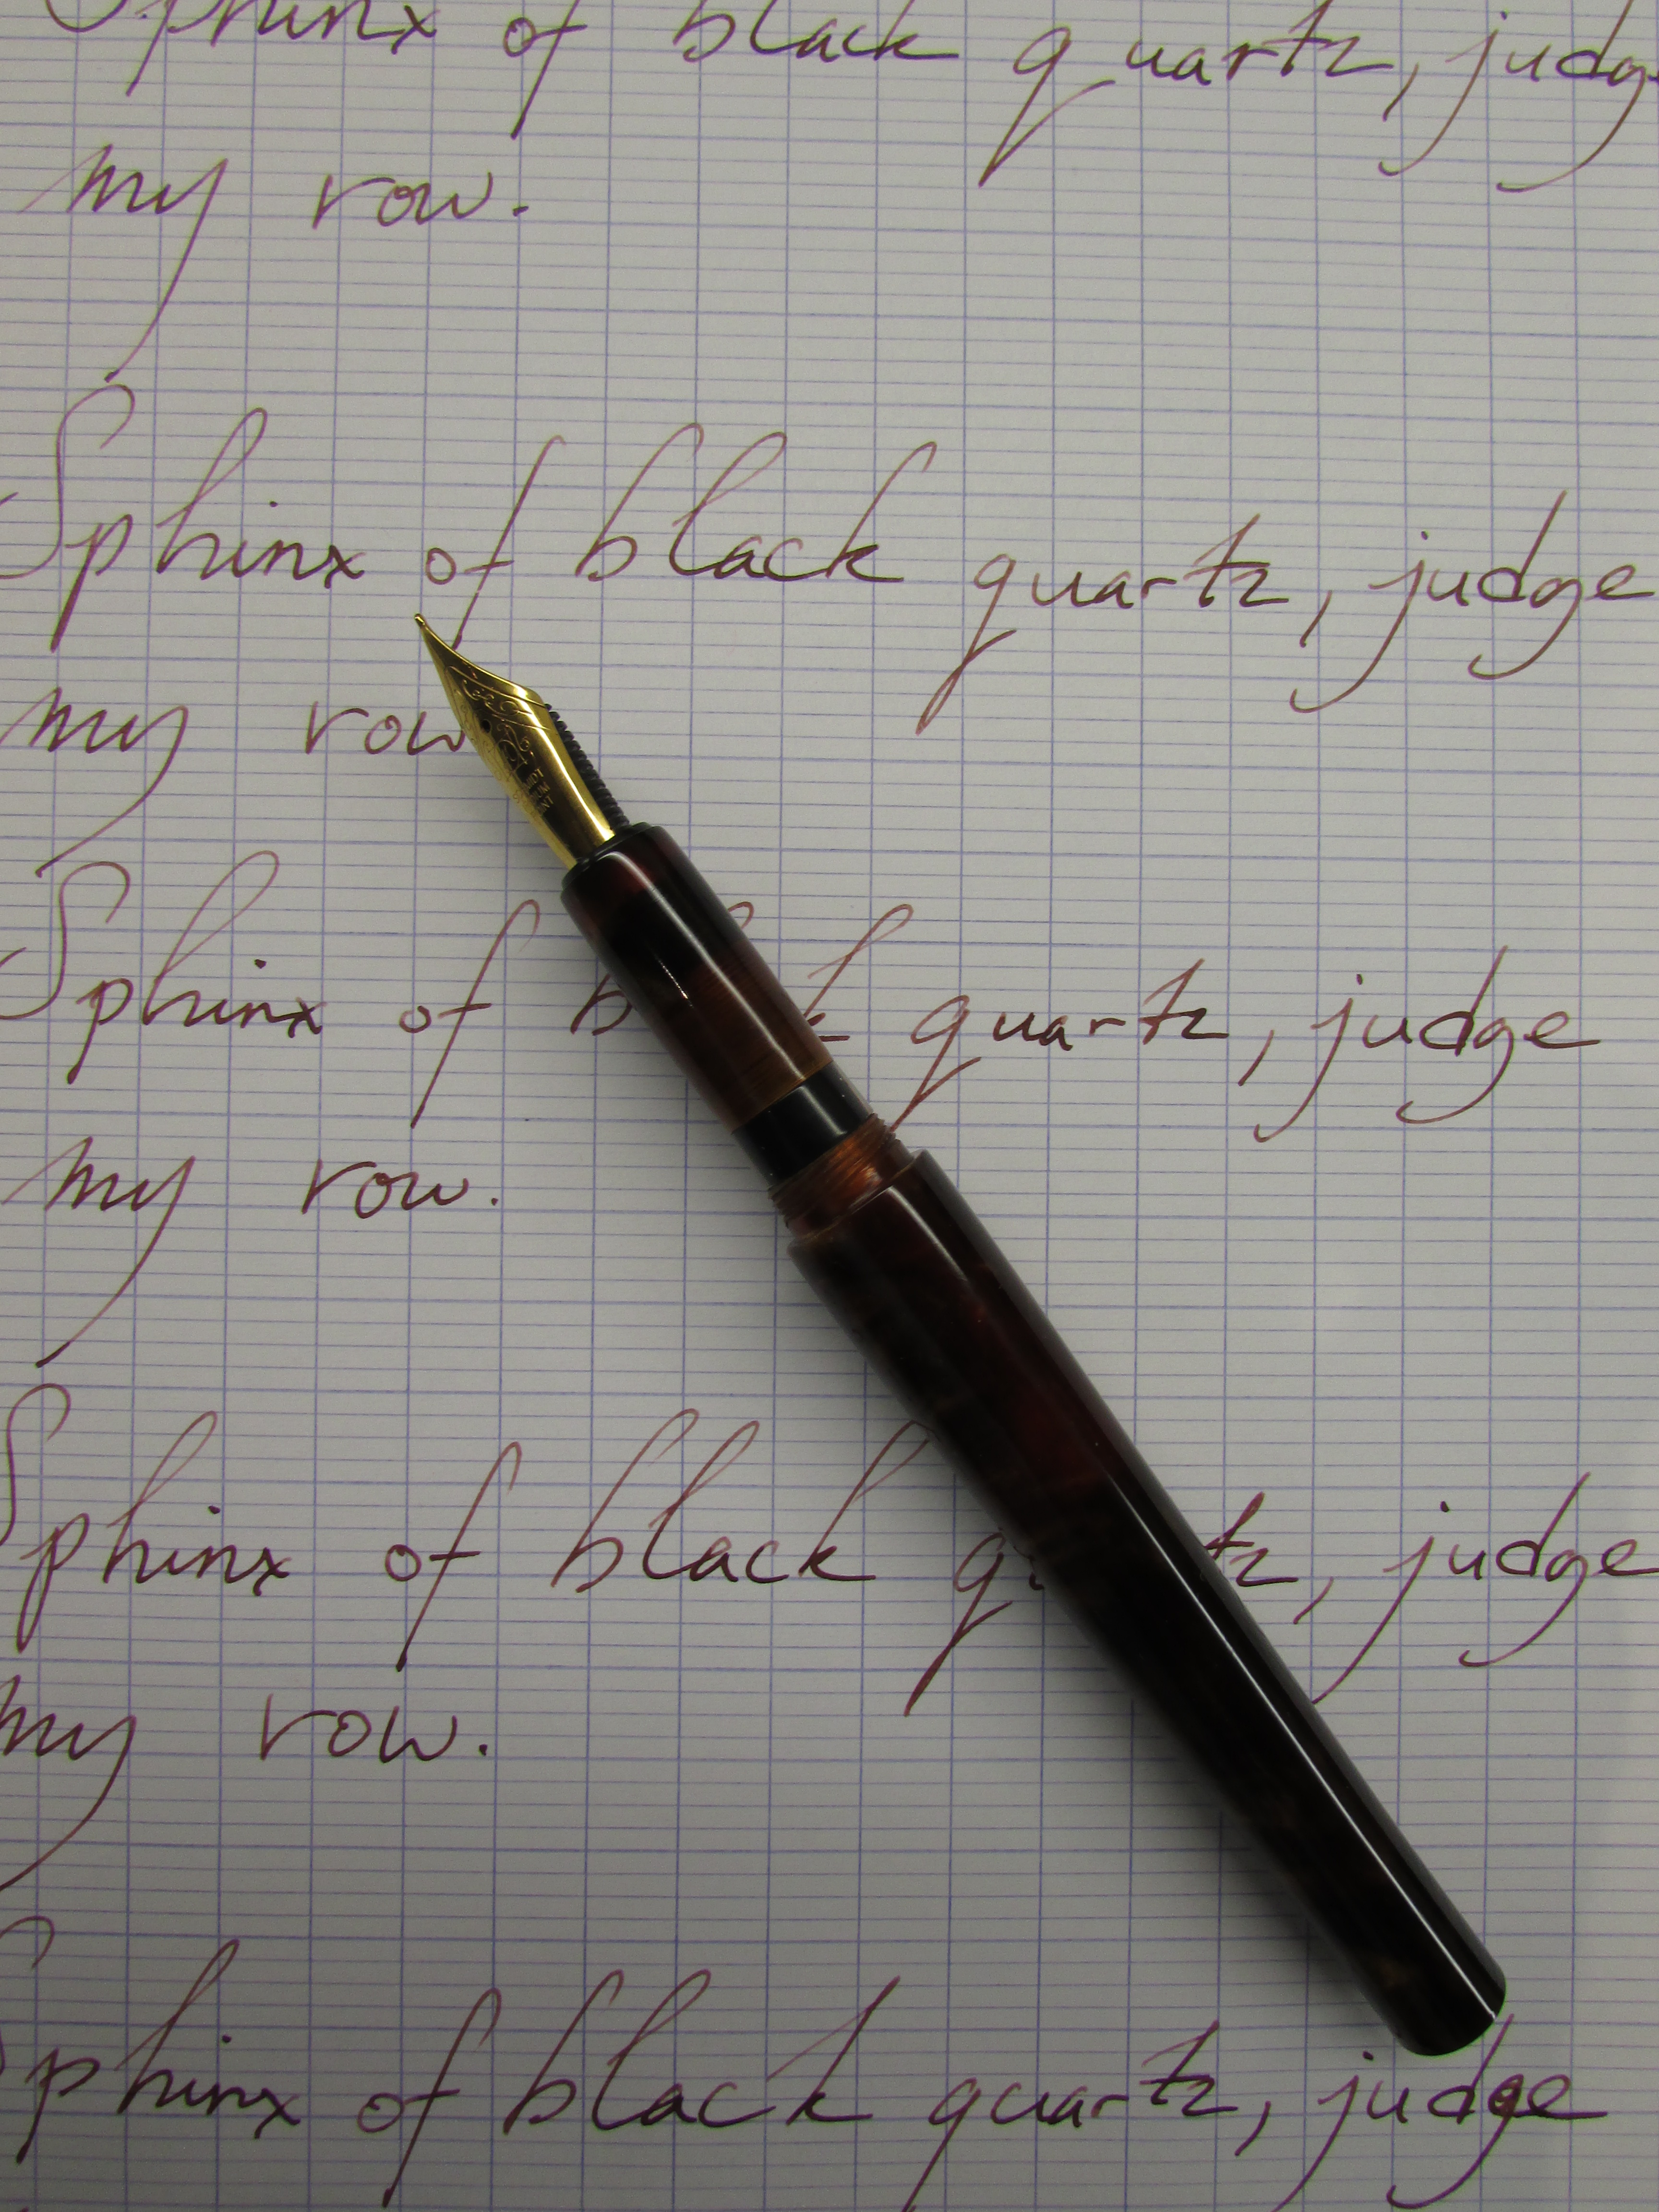 Sphinx of black quartz, judge
my row.
Sphinx of black quartz, judge
my row
Sphinx of quartz, judge
my row.
Sphinx of black judge
my row.
Sphinx of black quartz, judge